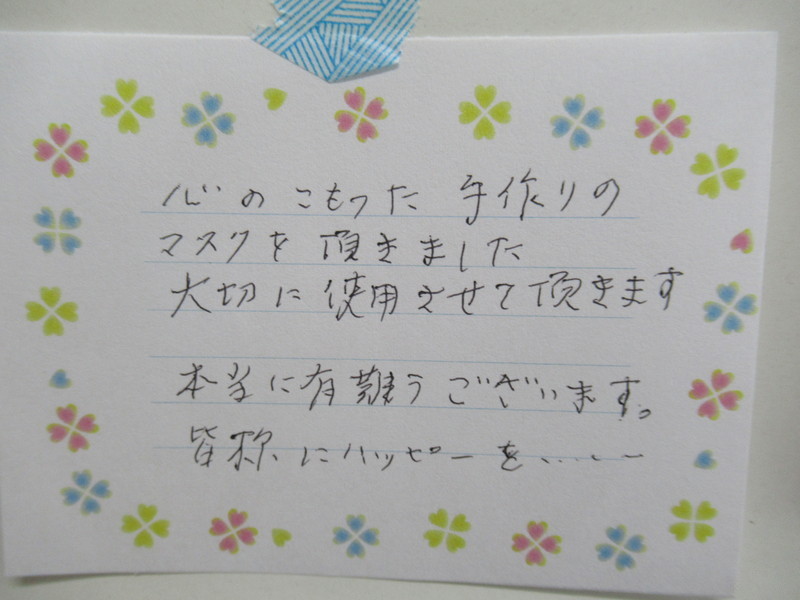 心のこもった 手作りの
マスクを 頂きました
大切に 使用させて頂きます
本当に有難うございます。
皆様にハッピーを、、、、、